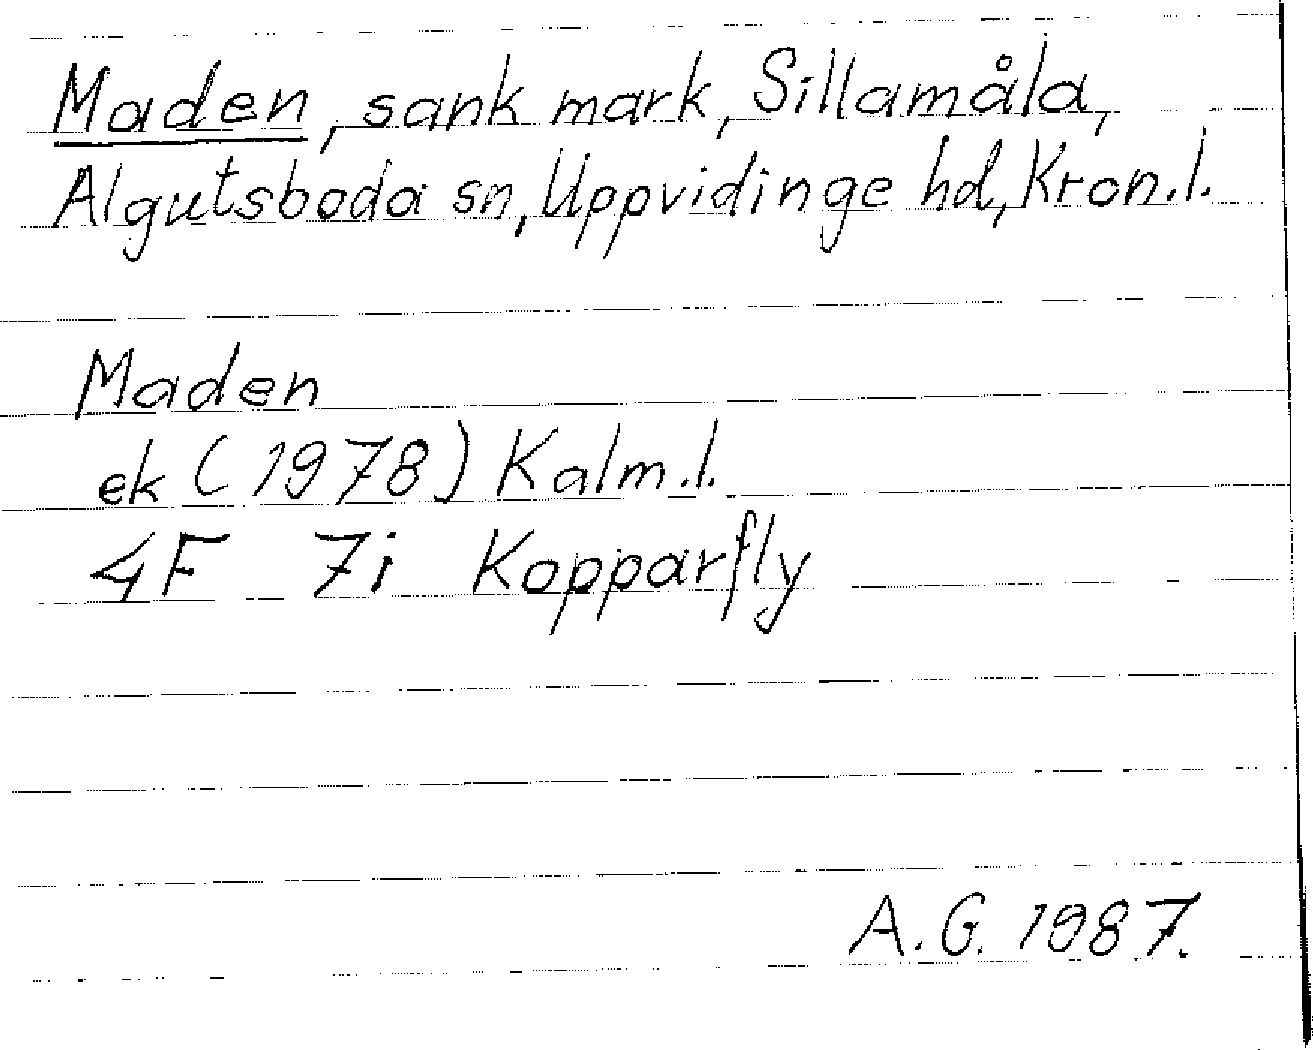 Maden, sank mark, Sillamåla,
Algutsboda sn, Uppvidinge hd, Kron.l.
Maden
ek (1978) Kalm.l.
4F 7i Kopparfly
A.G. 1987.